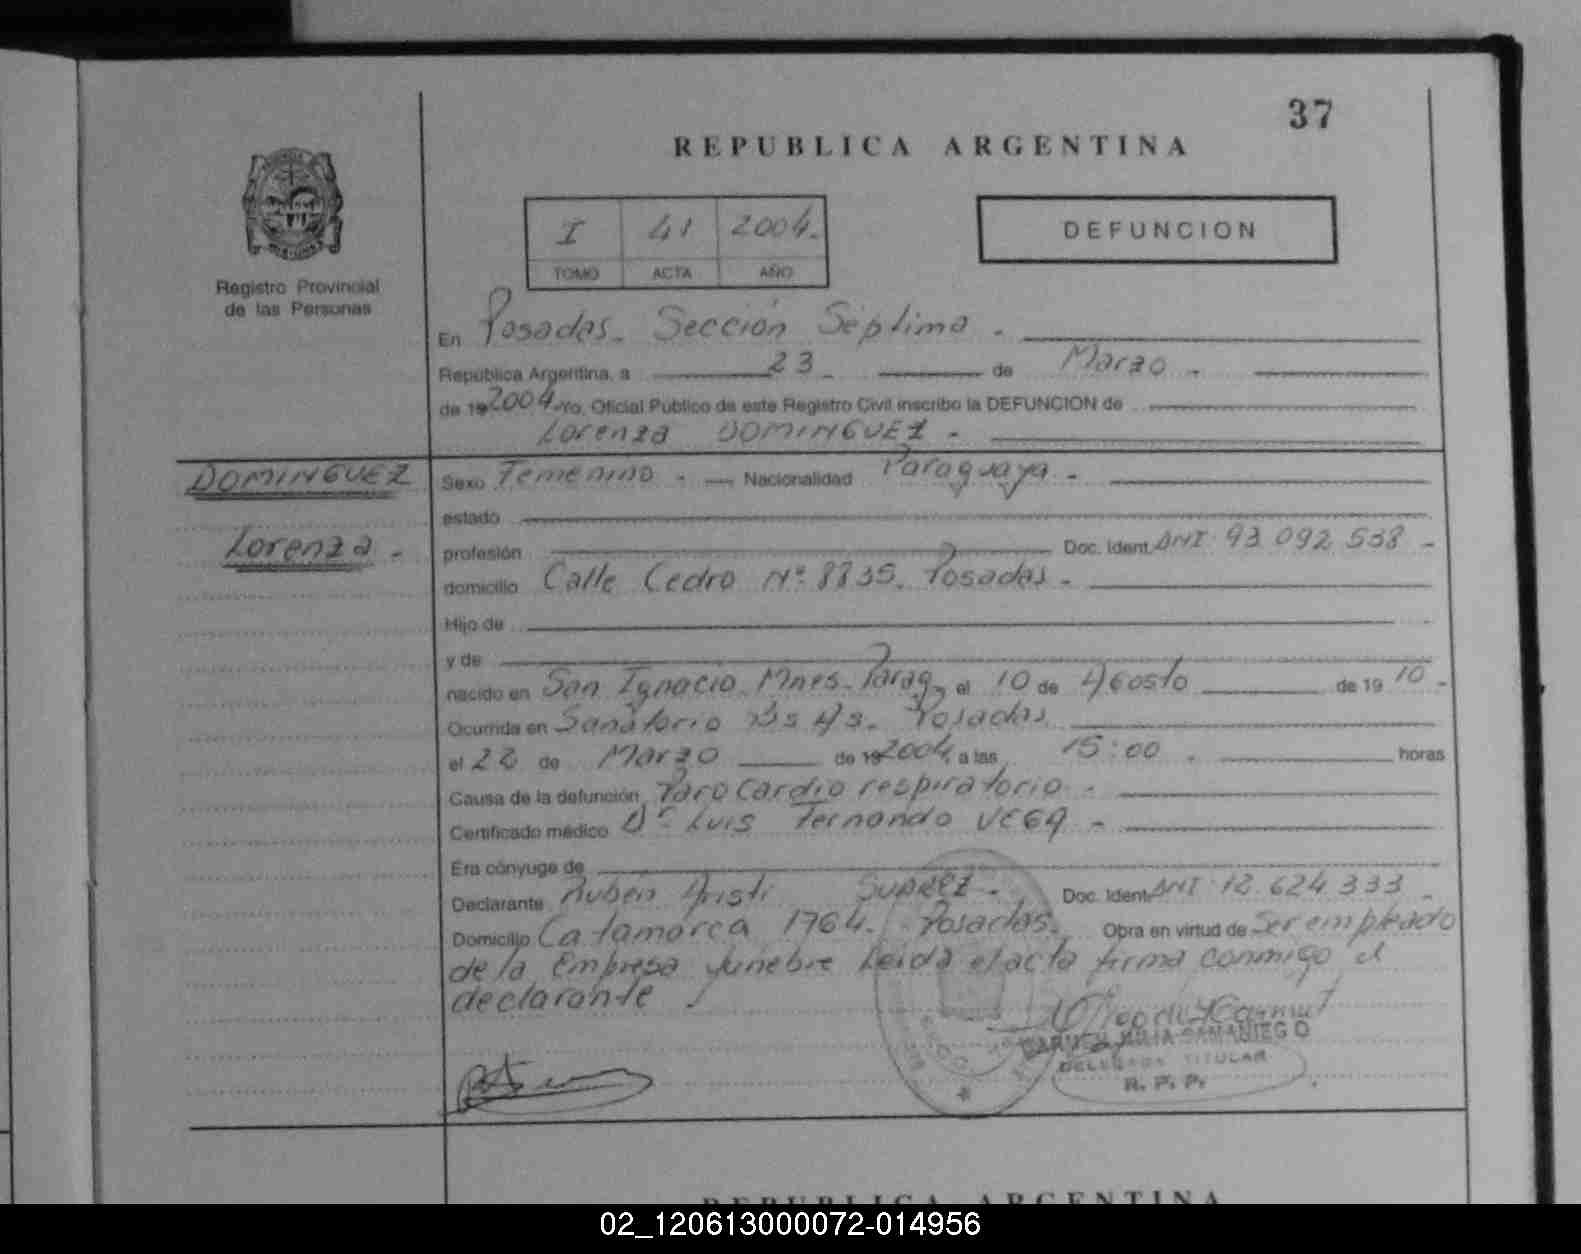 37
REPUBLICA ARGENTINA
Registro Provincial
de las Personas
I 41 2004.
TOMO ACTA AÑO
DEFUNCION
En Posadas. Sección Séptima.
República Argentina, a 23 de Marzo
de 19 2004 Yo, Oficial Público de este Registro Civil inscribo la DEFUNCION de
Lorenza DOMINGUEZ.
DOMINGUEZ
Lorenza.
Sexo Femenino. Nacionalidad Paraguaya.
estado
profesión Doc. Ident. DNI 93 092 538
domicilio Calle Cedro Nº 8835. Posadas.
Hijo de
y de
nacido en San Ignacio Mnes. Parag, el 10 de Agosto de 19 10
Ocurrida en Sanatorio Bs As. Posadas
el 22 de Marzo de 19 2004 a las 15:00 horas
Causa de la defunción Paro cardio respiratorio.
Certificado médico Dr Luis Fernando VEGA
Era cónyuge de
Declarante Rubén Aristi SUAREZ. Doc. Ident. DNI 12.624.333
Domicilio Catamarca 1764. Posadas. Obra en virtud de Ser empleado
de la Empresa funebre Leida el acta firma conmigo el
declarante
CARMEN JULIA SAMANIEGO
DELEGADA TITULAR
R. P. P.
REPUBLICA ARGENTINA
02_120613000072-014956